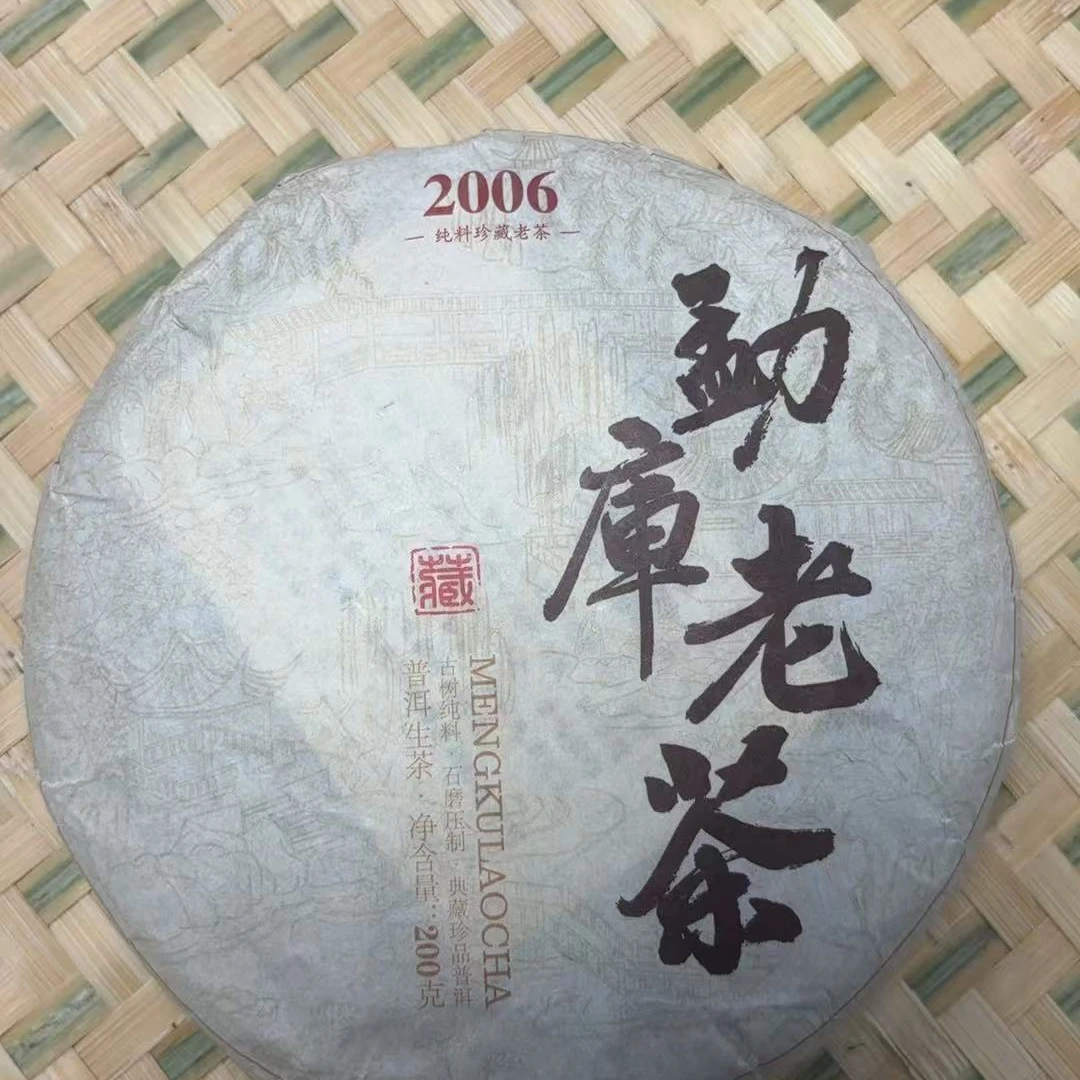 2006
纯料珍藏老茶
勐库老茶
藏
MENGKULAOCHA
古树纯料·石磨压制·典藏珍品普洱
普洱生茶·净含量:200克